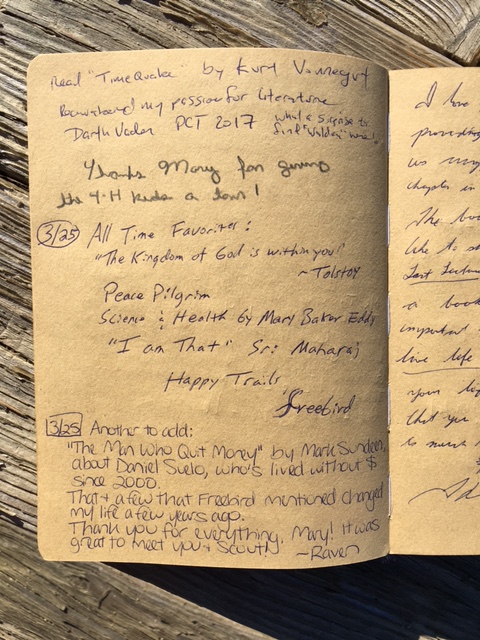 Read "TimeQuake" by Kurt Vonnegut
my passion for Literature
Darth Vader PCT 2017 what a surprise to
find "Walden" here!
Thanks Mary for giving
the 4-H kids a tour!
3/25 All Time Favorites:
"The Kingdom of God is within you"
~ Tolstoy
Peace Pilgrim
Science & Health by Mary Baker Eddy
"I am That" Sri Maharaj
Happy Trails
Freebird
3/25 Another to add:
"The Man Who Quit Money" by Mark Sundeen,
about Daniel Suelo, who's lived without $
since 2000.
That + a few that Freebird mentioned changed
my life a few years ago.
Thank you for everything, Mary! It was
great to meet you + Scout!
~Raven
I have
providing
us
chapter in
The
like to
Last Lecture
a book
important
live life
your
that you
to much